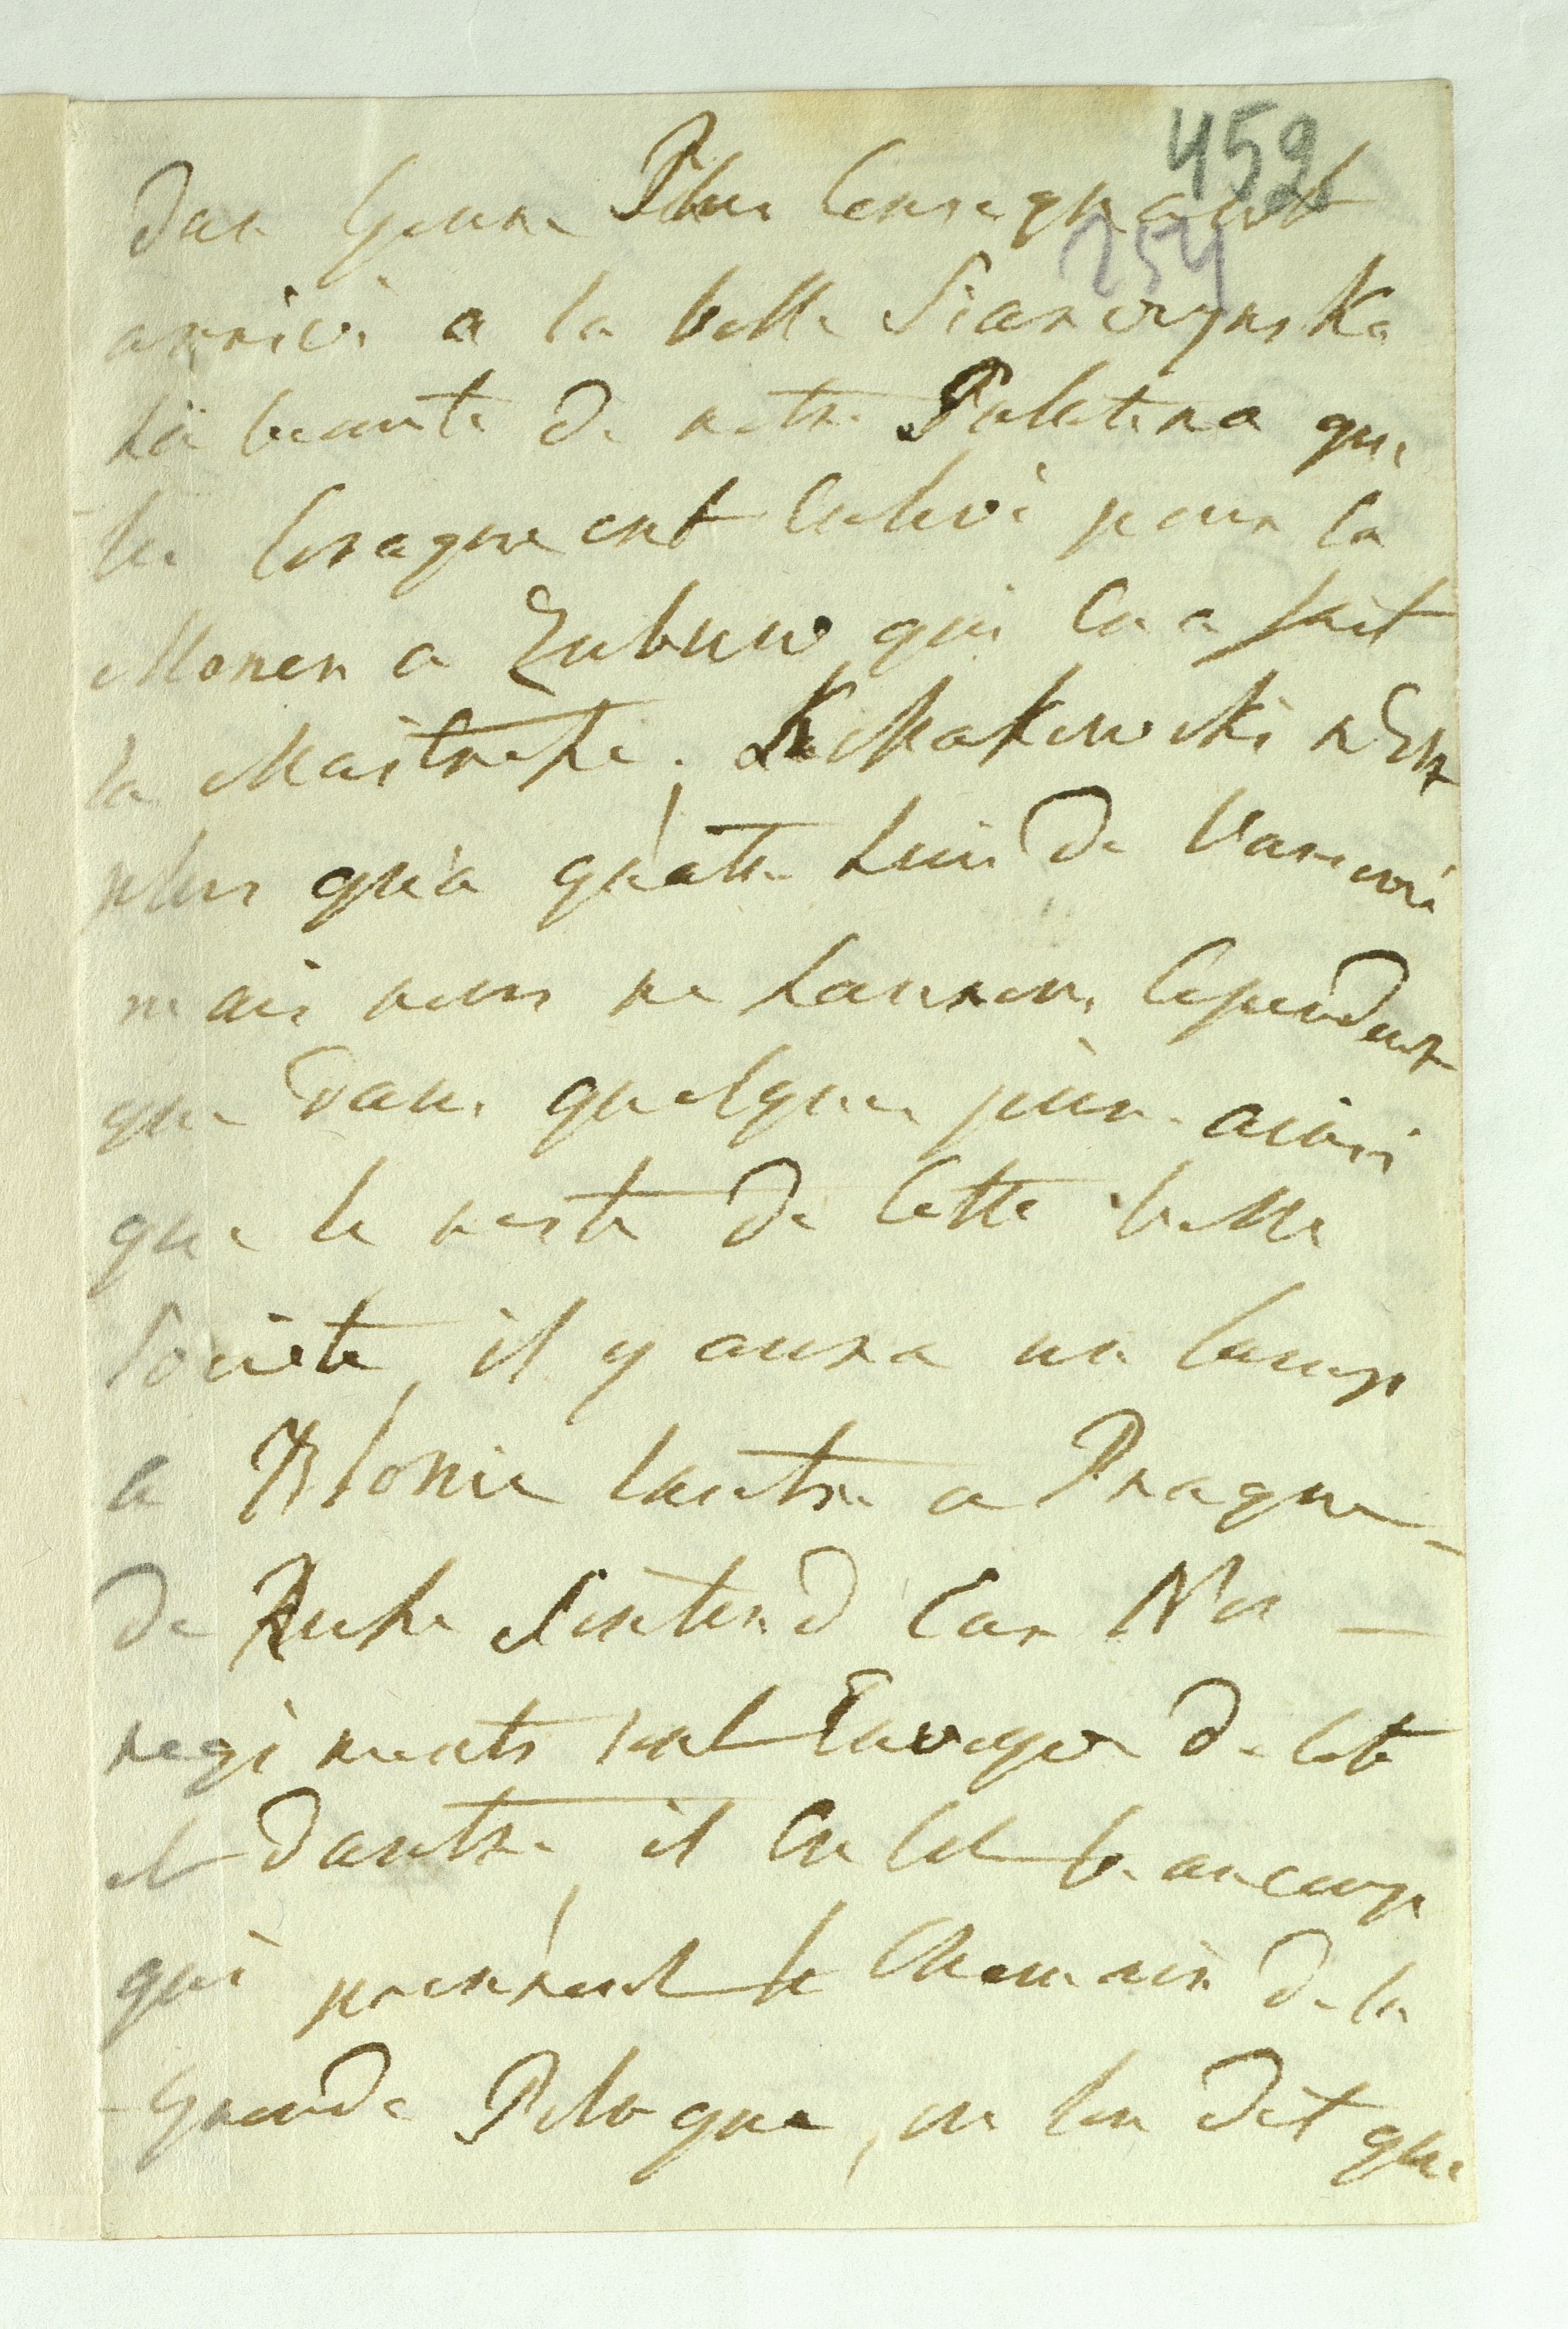 459
254
dun genre Plus
arrivé a la belle
la beauté de notre Palatina que
les Cosaques ont enlevé pour la
Mener a Zubuw qui en a fait
sa Maitresse. Kossakowski nEst
plus qu'a quatre lieu de Varsovie
mais nous ne laurons Cependant
que dans quelques jours ainsi
que le reste de Cette belle
Societe, il y aura un Camp
a Blonie lautre a Prague
de Russe Sintend Car Nos
regiments sont Envoyes de Cote
et dautre, il En Est beaucoup
qui prennent le Chemain de la
Grande Pologne, on len dit que